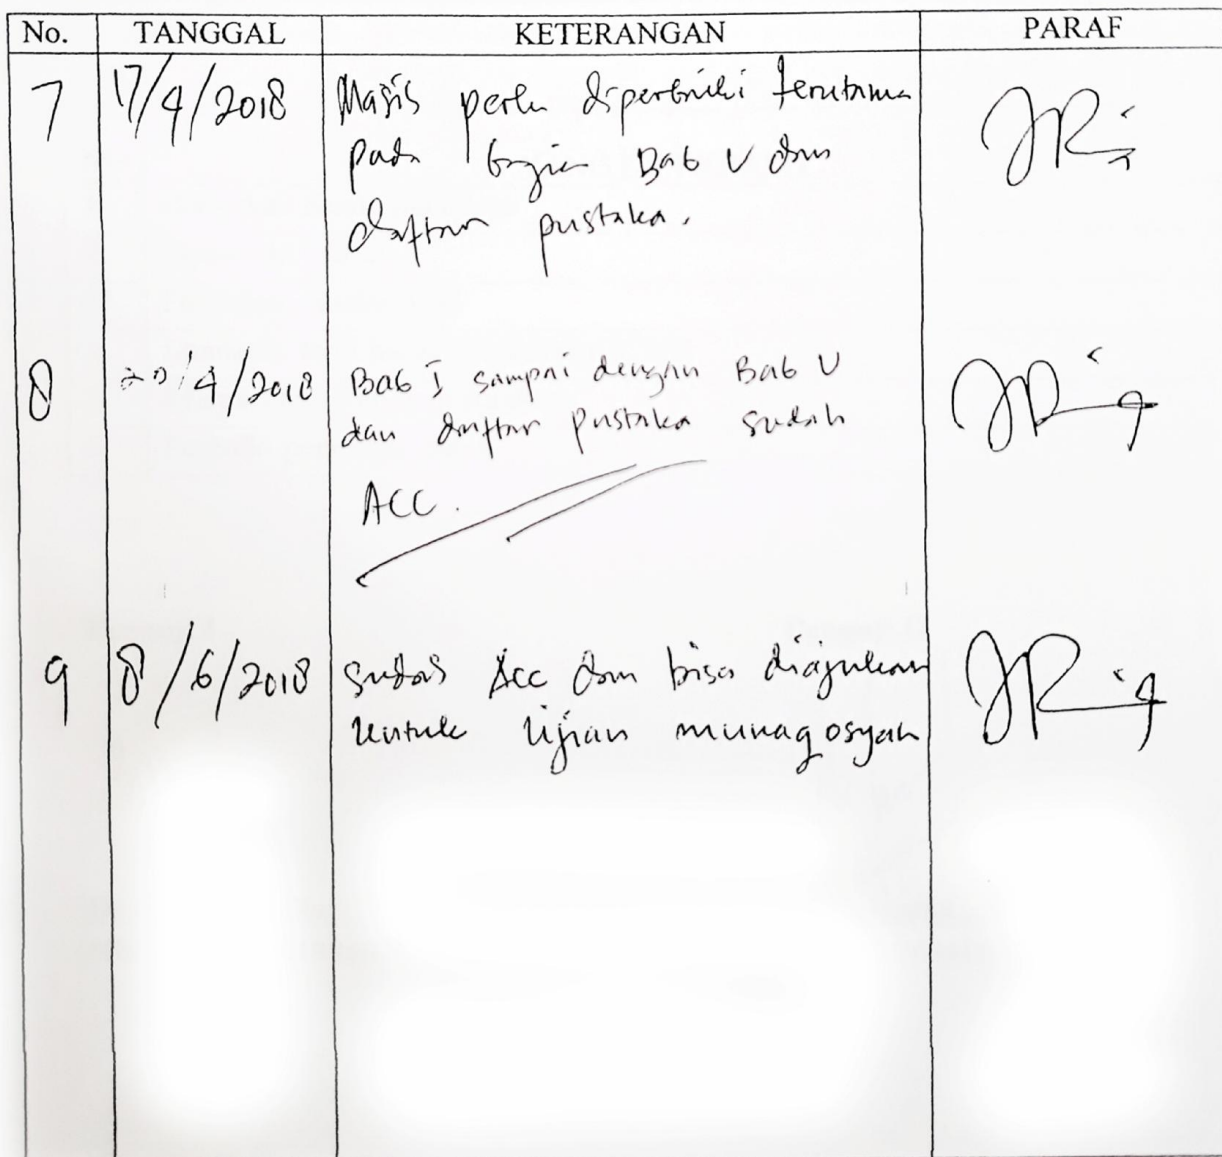 No. TANGGAL KETERANGAN PARAF
7 17/4/2018 Masih perlu diperbaiki terutama
pada bagian Bab V dan
daftar pustaka.
8 20/4/2018 Bab I sampai dengan Bab V
dan daftar pustaka sudah
ACC.
9 8/6/2018 sudah Acc dan bisa diajukan
untuk Ujian munaqosyah